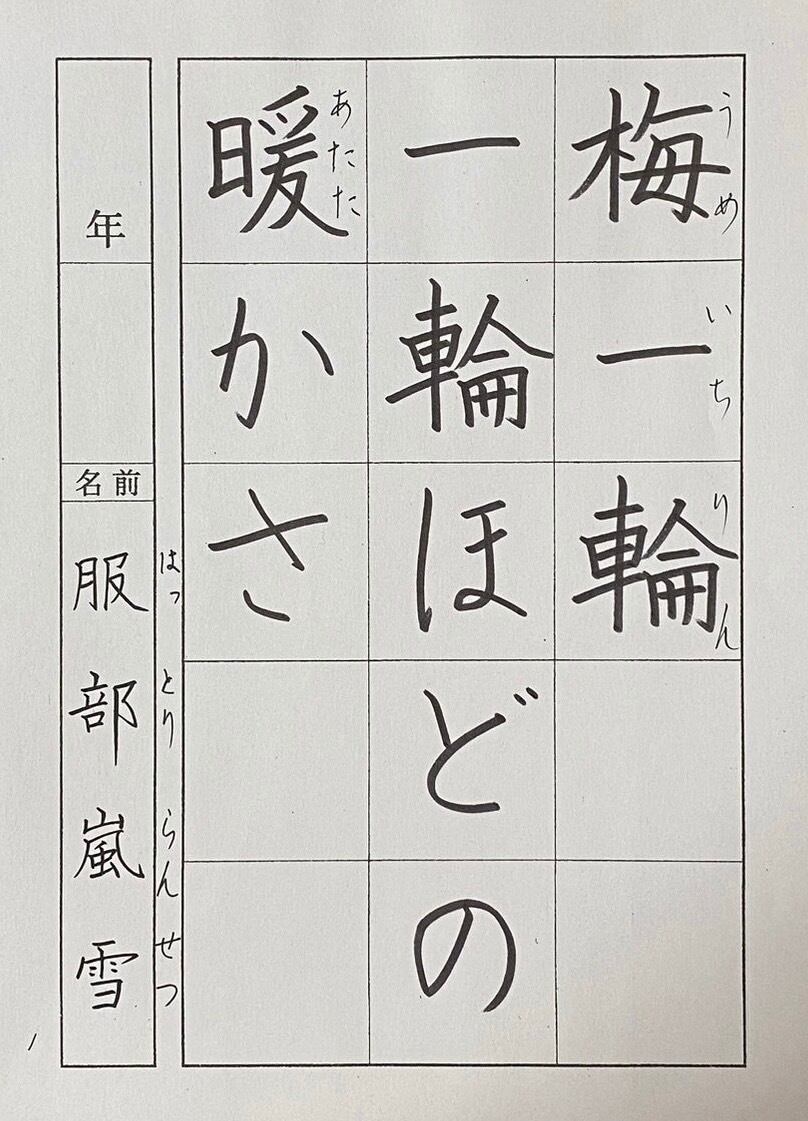 梅一輪
うめいちりん
一輪ほどの
暖かさ
あたた
年
名前
服部嵐雪
はっとりらんせつ